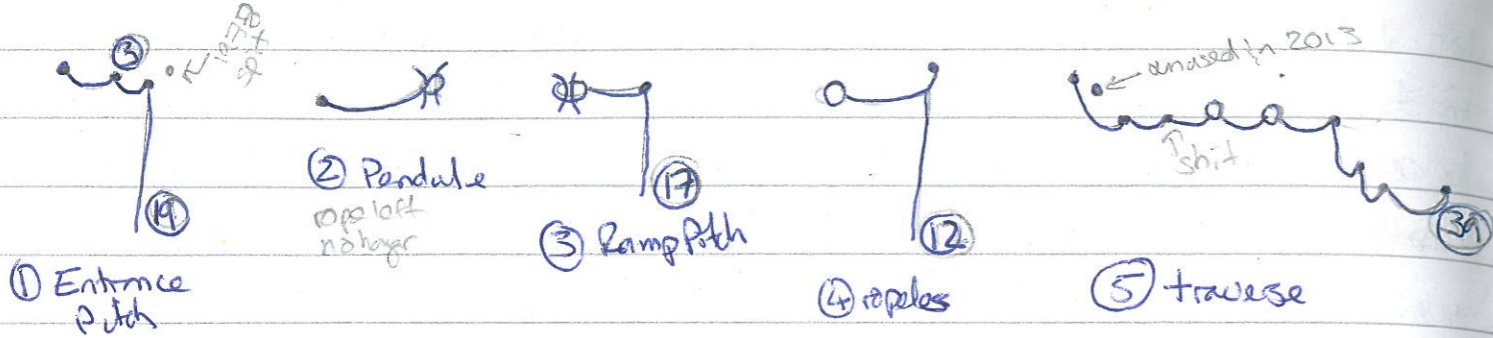 3
19
① Entrance
Pitch
② Pendule
rope left
no hanger
17
③ Ramp Pitch
12
④ ropeless
unused in 2013
shit
39
⑤ traverse